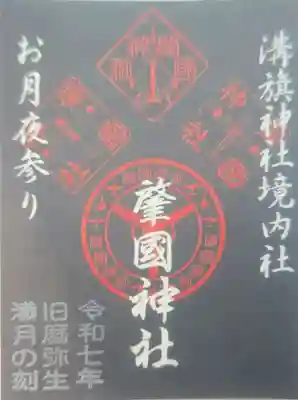 溝旗神社境内社
肇國神社
お月夜参り
令和七年
旧暦弥生
満月の刻